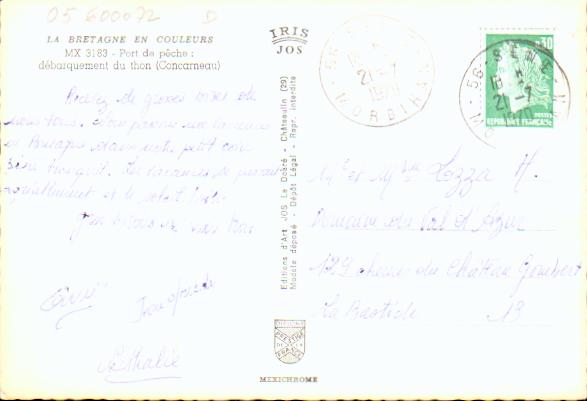 05 600072 D
LA BRETAGNE EN COULEURS
MX 3183 - Port de pêche :
débarquement du thon (Concarneau)
IRIS
JOS
Recevez de grosses bises de
nous tous. Nous passons nos vacances
en Bretagne dans notre petit coin
bien tranquil. Les vacances se passent
agréablement et le soleil
vous tous
Nathalie
Editions d'Art JOS Le Doaré - Châteaulin (29)
Modèle déposé - Dépôt Légal - Repr. interdite
PRESTIGE
FRANCE
MEXICHROME
56
21-7
1970
MORBIHAN
56 - SENE
18 H
21-7
1970
0,30
POSTES
REPUBLIQUE FRANCAISE
Mr et Mme Lozza A.
Domaine du Val d'Azur
129 chemin du Château Gombert
La Bastide 13